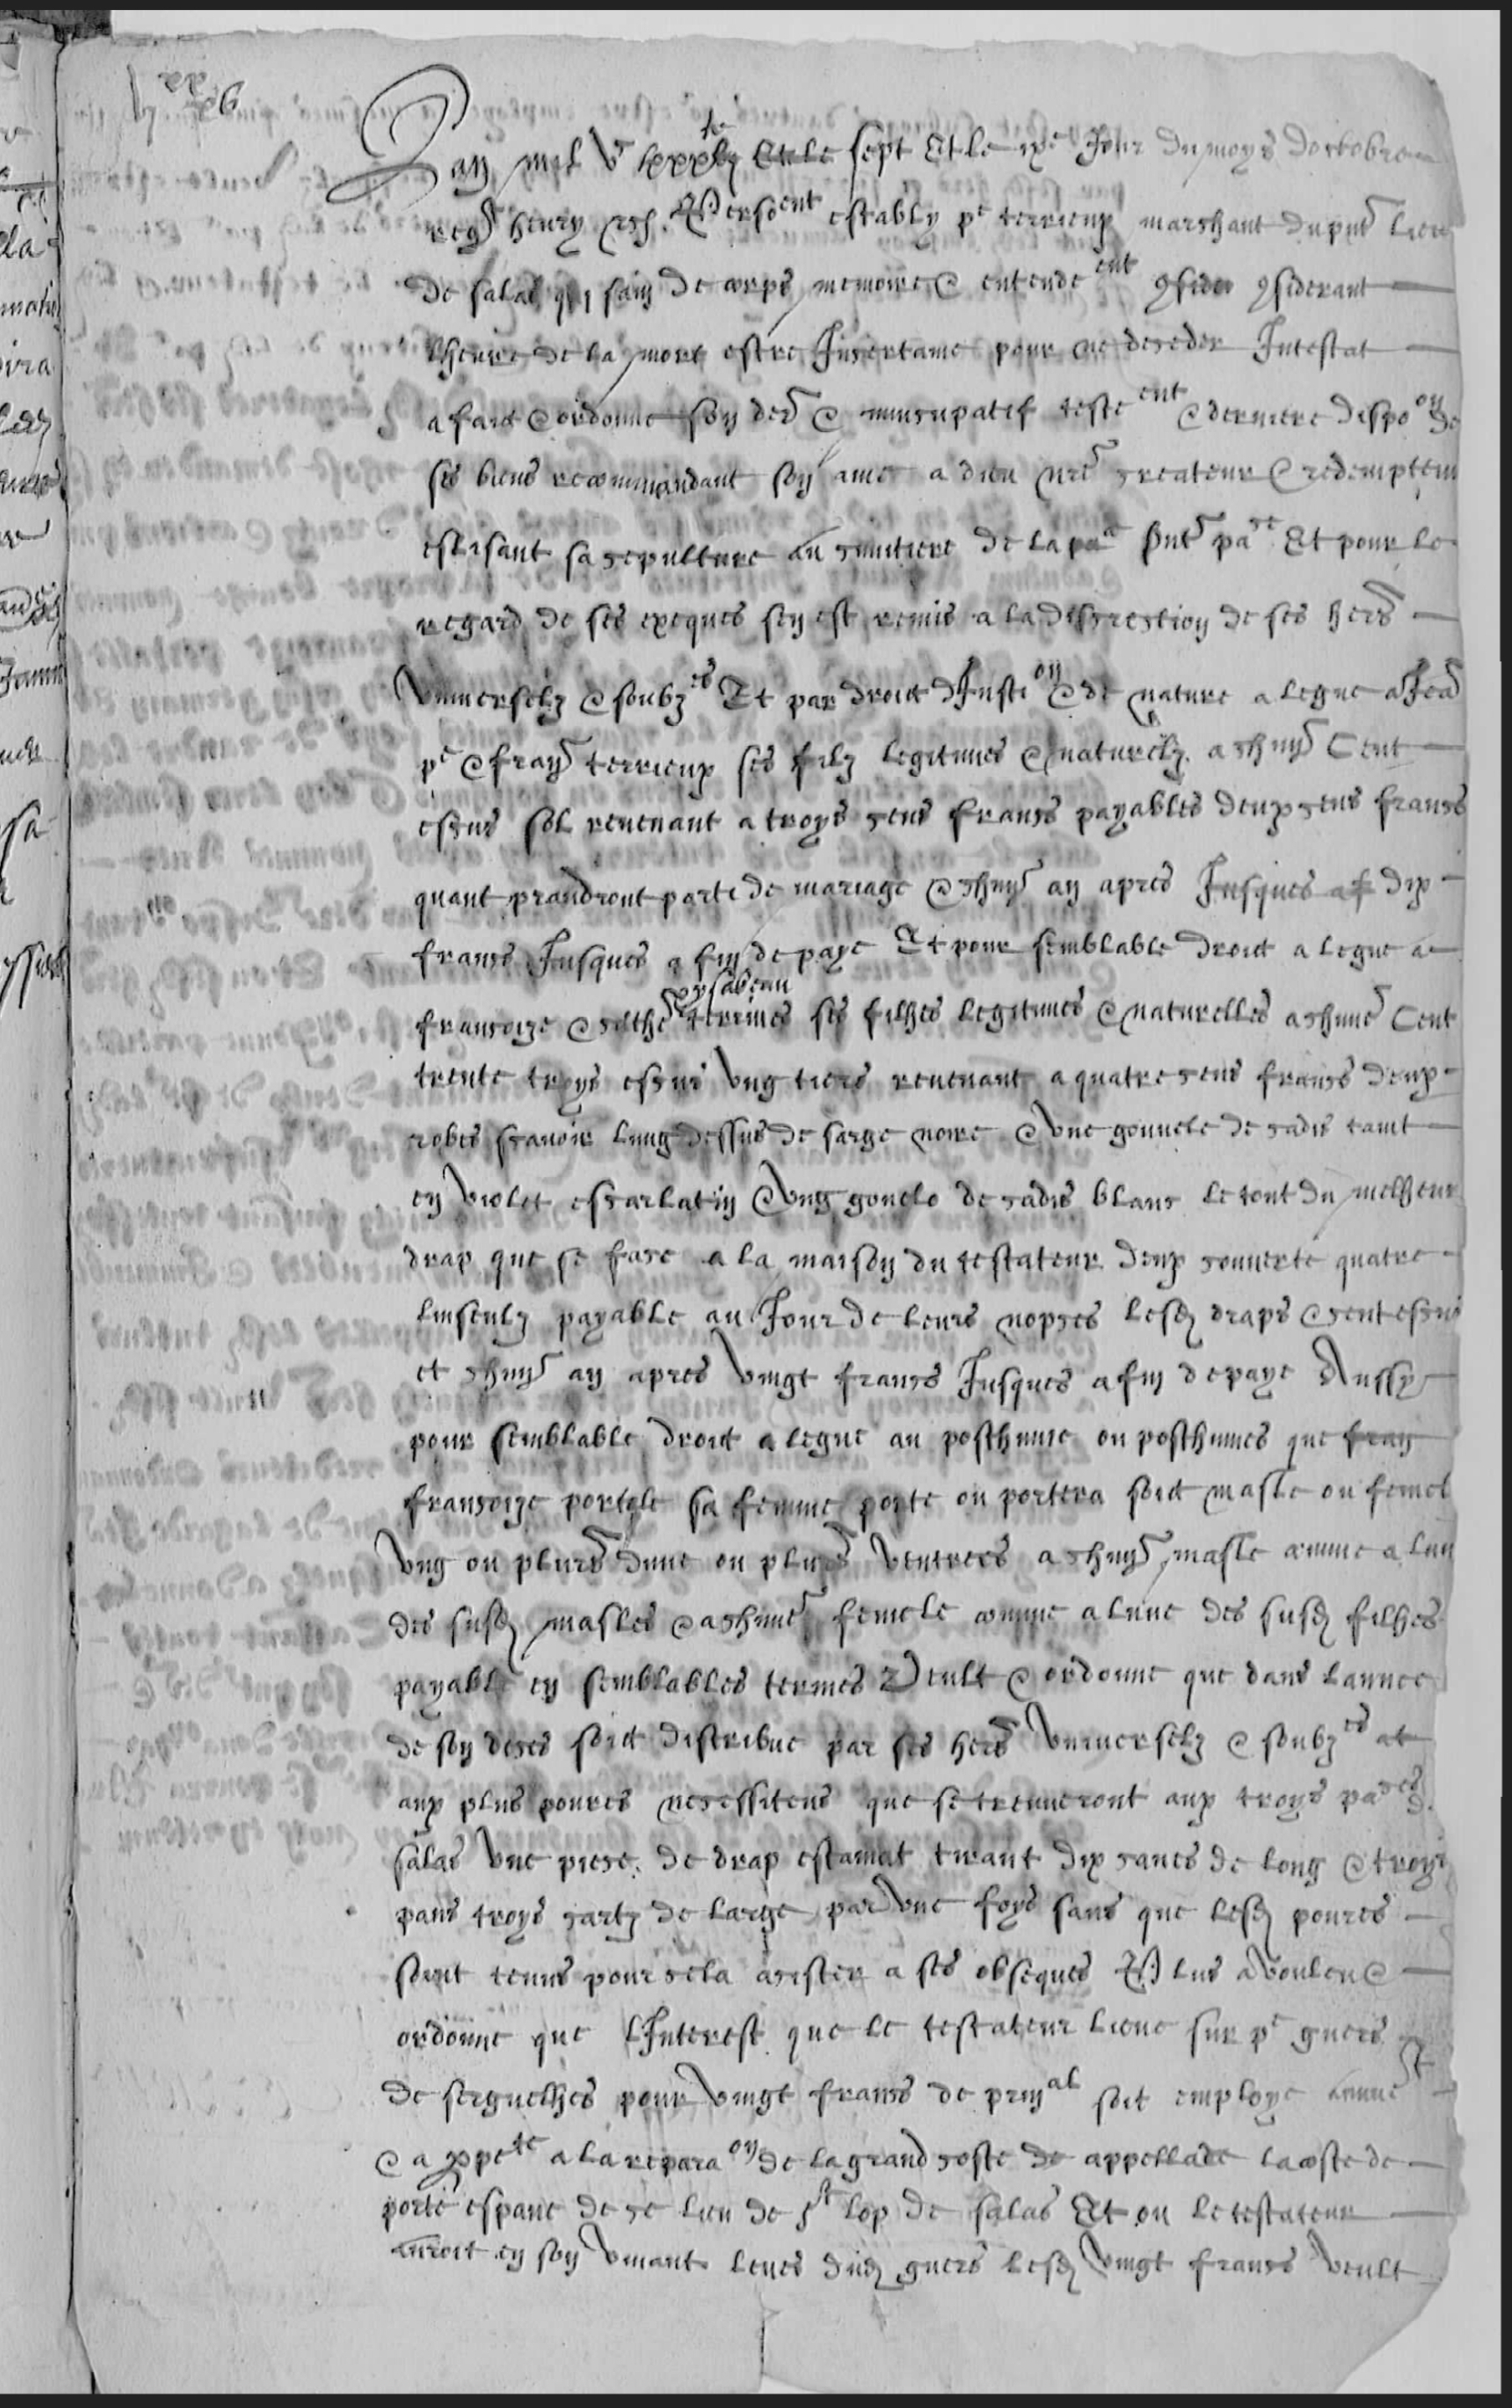 Lan mil vc lxxx sept Et le ixe Jour du moys doctobre
regnt henry Establyssement estably pe terrieux marchant du pnt lieu
de salas quj sain de corps memoire & entendement considerant
lheure de la mort estre Insertaine pour ne deseder Intestat
a faict & ordonne son der & nuncupatif testement & derniere dispoon de
ses biens recommandant son ame a dieu nre createur & redempteur
eslisant sa sepulture au simitiere de la pnt pase Et pour le
regard de ses exeques sen est remis a la discrestion de ses hers
universelz & soubzes Et par droict dInstion & de nature a legue a Jea
pe & frans terrieux ses filz legitimes & naturelz a chun Cent
escus sol revenant a troys cens frans payables deux sens frans
quant prandront parti de mariage & chun an apres Jusques dix
frans Jusques a fin de paye Et pour semblable droict a legue a
fransoize & cathe ysabeau terrines ses filhes legitimes & naturelles a chune Cent
trente troys escus ung tiers revenant a quatre cens frans deux
robes scavoir lung dessus de sarge noire & une gonnele de cadis taint
en violet escarlatin & ung gonelo de cadis blanc le tout du melheur
drap que se fase a la maison du testateur deux couverte quatre
linseulz payable au Jour de leurs nopces lesd draps & cent escus
et chun an apres vingt frans Jusques a fin de paye Aussy
pour semblable droict a legue au posthume ou posthumes que fran
fransoize portale sa femme porte ou portera soict masle ou femel
ung ou plurs dune ou plurs ventrees a chun masle comme a lun
des susd masles & a chune femele comme a lune des susd filhes
payable en semblables termes Veult & ordonne que dans lannee
de son deces soict distribue par ses hers universelz & soubzes at
aux plus poures necessiteus que se treuveront aux troys pases d
salas une piese de drap estamat tirant dix canes de long & troys
pans troys cartz de large par une foys sans que lesd poures
soint tenus pour cela asister a ses obseques Plus a vouleu &
ordonne que lInterest que le testateur lieve sur pe guers
de serguelhes pour vingt frans de prinal soit employe
& a ppete a la reparaon de la grand coste de appellade la coste de
porte espane de ce lieu de st lop de salas Et ou le testateur
auroit en son vivant leves dud guers lesd vingt frans veult